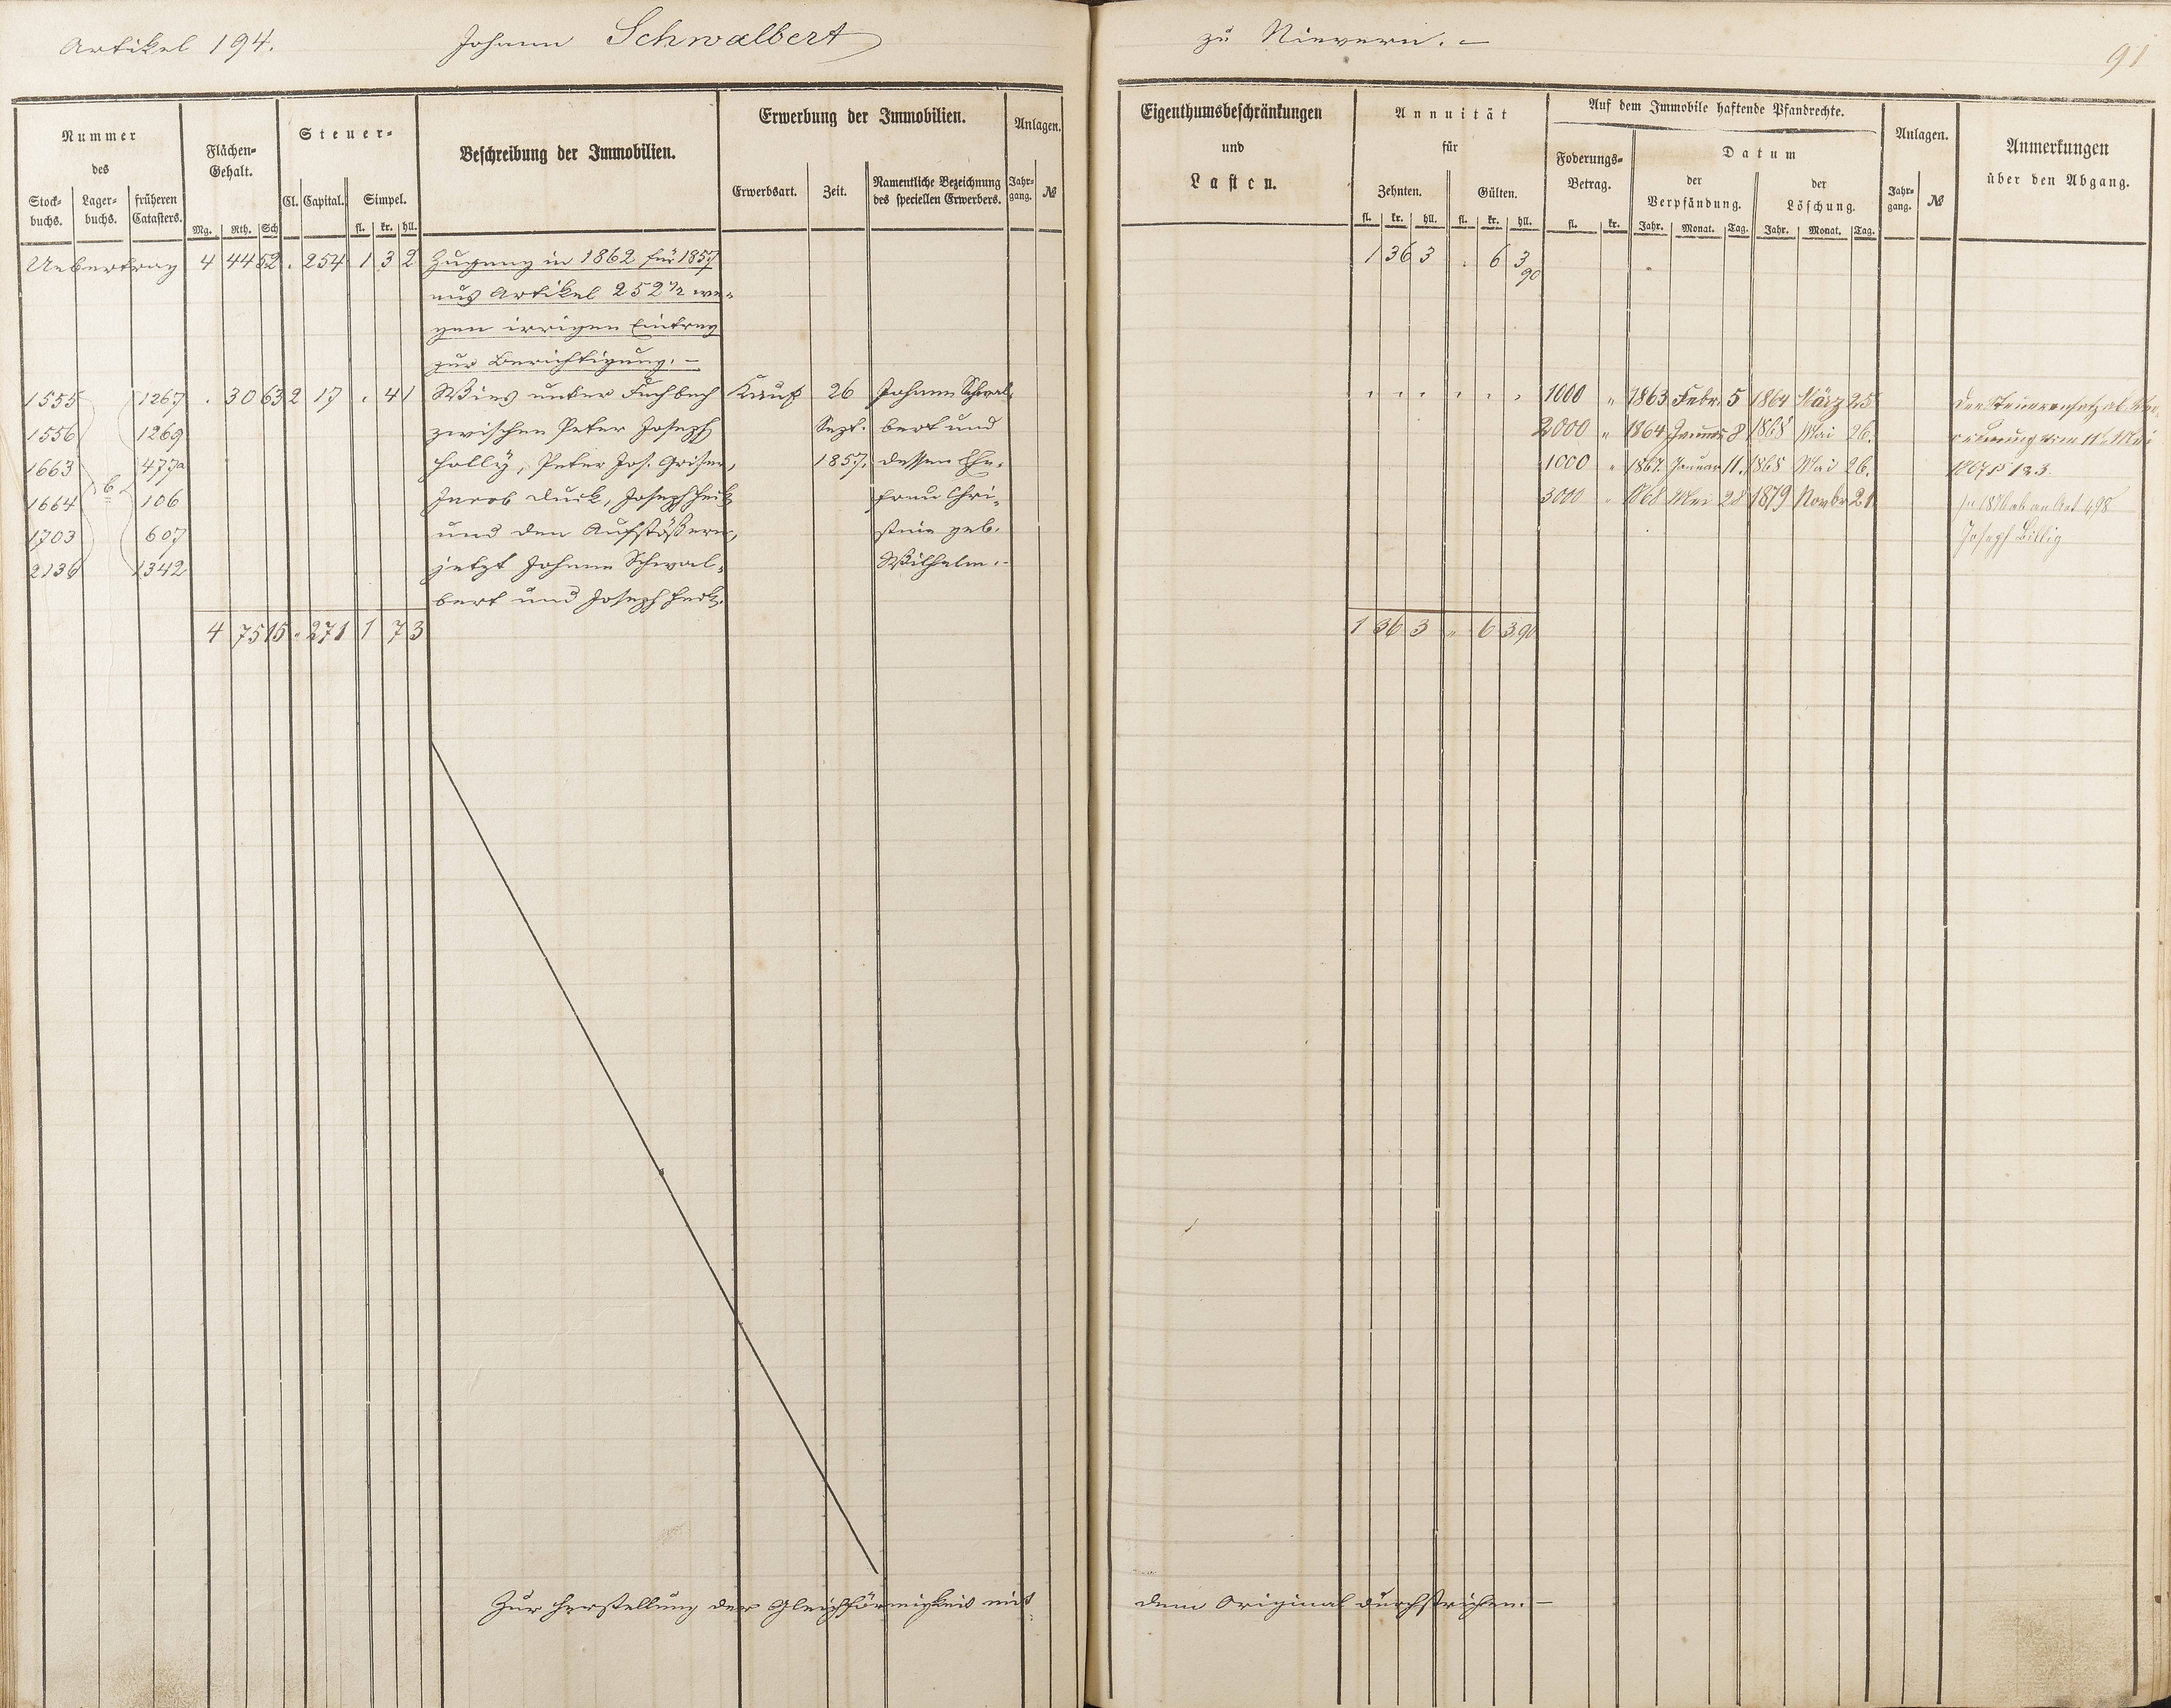 Artikel 194. Johann Schwalbert zu Nievern. -
91
Nummer des
Stock-buchs. Lager-buchs. früheren Catasters.
Flächen-Gehalt.
Mg. Rth. Sch
Steuer-
Cl. Capital. Simpel.
fl. kr. hll.
Beschreibung der Immobilien.
Erwerbung der Immobilien.
Erwerbsart. Zeit. Namentliche Bezeichnung des speciellen Erwerbers.
Anlagen.
Jahr-gang. №
Eigenthumsbeschränkungen
und
Lasten.
Annuität
für
Zehnten. Gülten.
fl. kr. hll. fl. kr. hll.
Auf dem Immobile haftende Pfandrechte.
Foderungs-Betrag.
fl. kr.
Datum
der Verpfändung. der Löschung.
Jahr. Monat. Tag. Jahr. Monat. Tag.
Anlagen.
Jahr-gang. №
Anmerkungen
über den Abgang.
Uebertrag 4 44 52 . 254 1 3 2 Zugang in 1862 für 1857 1 36 3 . 6 3 90
aus Artikel 252 1/2 we-
gen irrigen Eintrag
zur Berichtigung. -
1555 1267 . 30 63 2 17 . 4 1 Wies unter Fuchbach Kauf 26 Johann Schwal- 1000 " 1863 Febr. 5 1864 März 25
1556 1269 zwischen Peter Joseph Sept. bert und 2000 " 1864 8 1868 Mai 26.
1663 477a Holly, Peter Jos. 1857. dessen Ehe- 1000 " 1867 Januar 11. 1868 Mai 26.
1664 6 106 Jacob Duck, Joseph frau Chri- 3000 " 1868 Mai 28 1879 Novbr 21
1703 607 und den Aufstößern, stina geb.
2136 1342 jetzt Johann Schwal- Wilhelm. -
bert und Joseph
4 75 15 . 271 1 7 3 1 36 3 " 6 3 90
Mai
1867 § 123.
In 1876 ab an Art 498
Joseph Billig
Zur Herstellung der Gleichförmigkeit mit dem Original durchstrichen. -